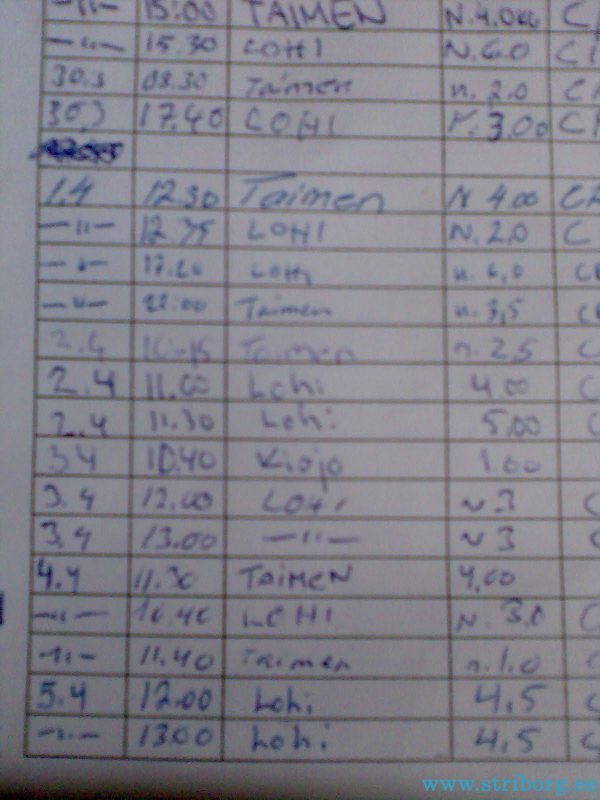 —"— 15:00 TAIMEN N.4.0KG C
—"— 15.30 LOHI N.6.0 C
30.3 08.30 Taimen n. 2.0 C
30.3 17.40 LOHI 3.00 C
1.4 12.30 Taimen N 4.00 C
—"— 12.35 LOHI N.2.0 C
—"— 17.20 LOHI n. 6,0 C
—"— 22:00 Taimen n. 3,5 C
2.4 10.15 Taimen n. 2,5 C
2.4 11.00 Lohi 4.00 C
2.4 11.30 Lohi 5.00 C
3.4 10.40 Kirjo 1.00
3.4 12.00 LOHI N 3 C
3.4 13.00 —"— N 3 C
4.4 11.30 TAIMEN 4.00
—"— 10.40 LOHI N. 3.0 C
—"— 11.40 Taimen n. 1.0 C
5.4 12.00 Lohi 4,5 C
—"— 13.00 Lohi 4,5 C
www.striborg.ee